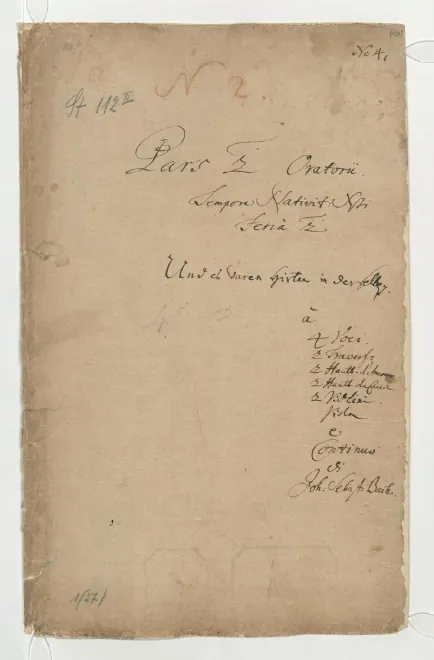 No 4,
N 2.
St 112 II
Pars 2 Oratorii.
Tempore Nativit: Xsti
Feria 2
Und es waren Hirten in derselben p.
à
4 Voci.
2 Travers:
2 Hautb. d'Amour
2 Hautb da Caccia
2 Violini.
Viola
e
Continuo
di
Joh: Sebast: Bach.